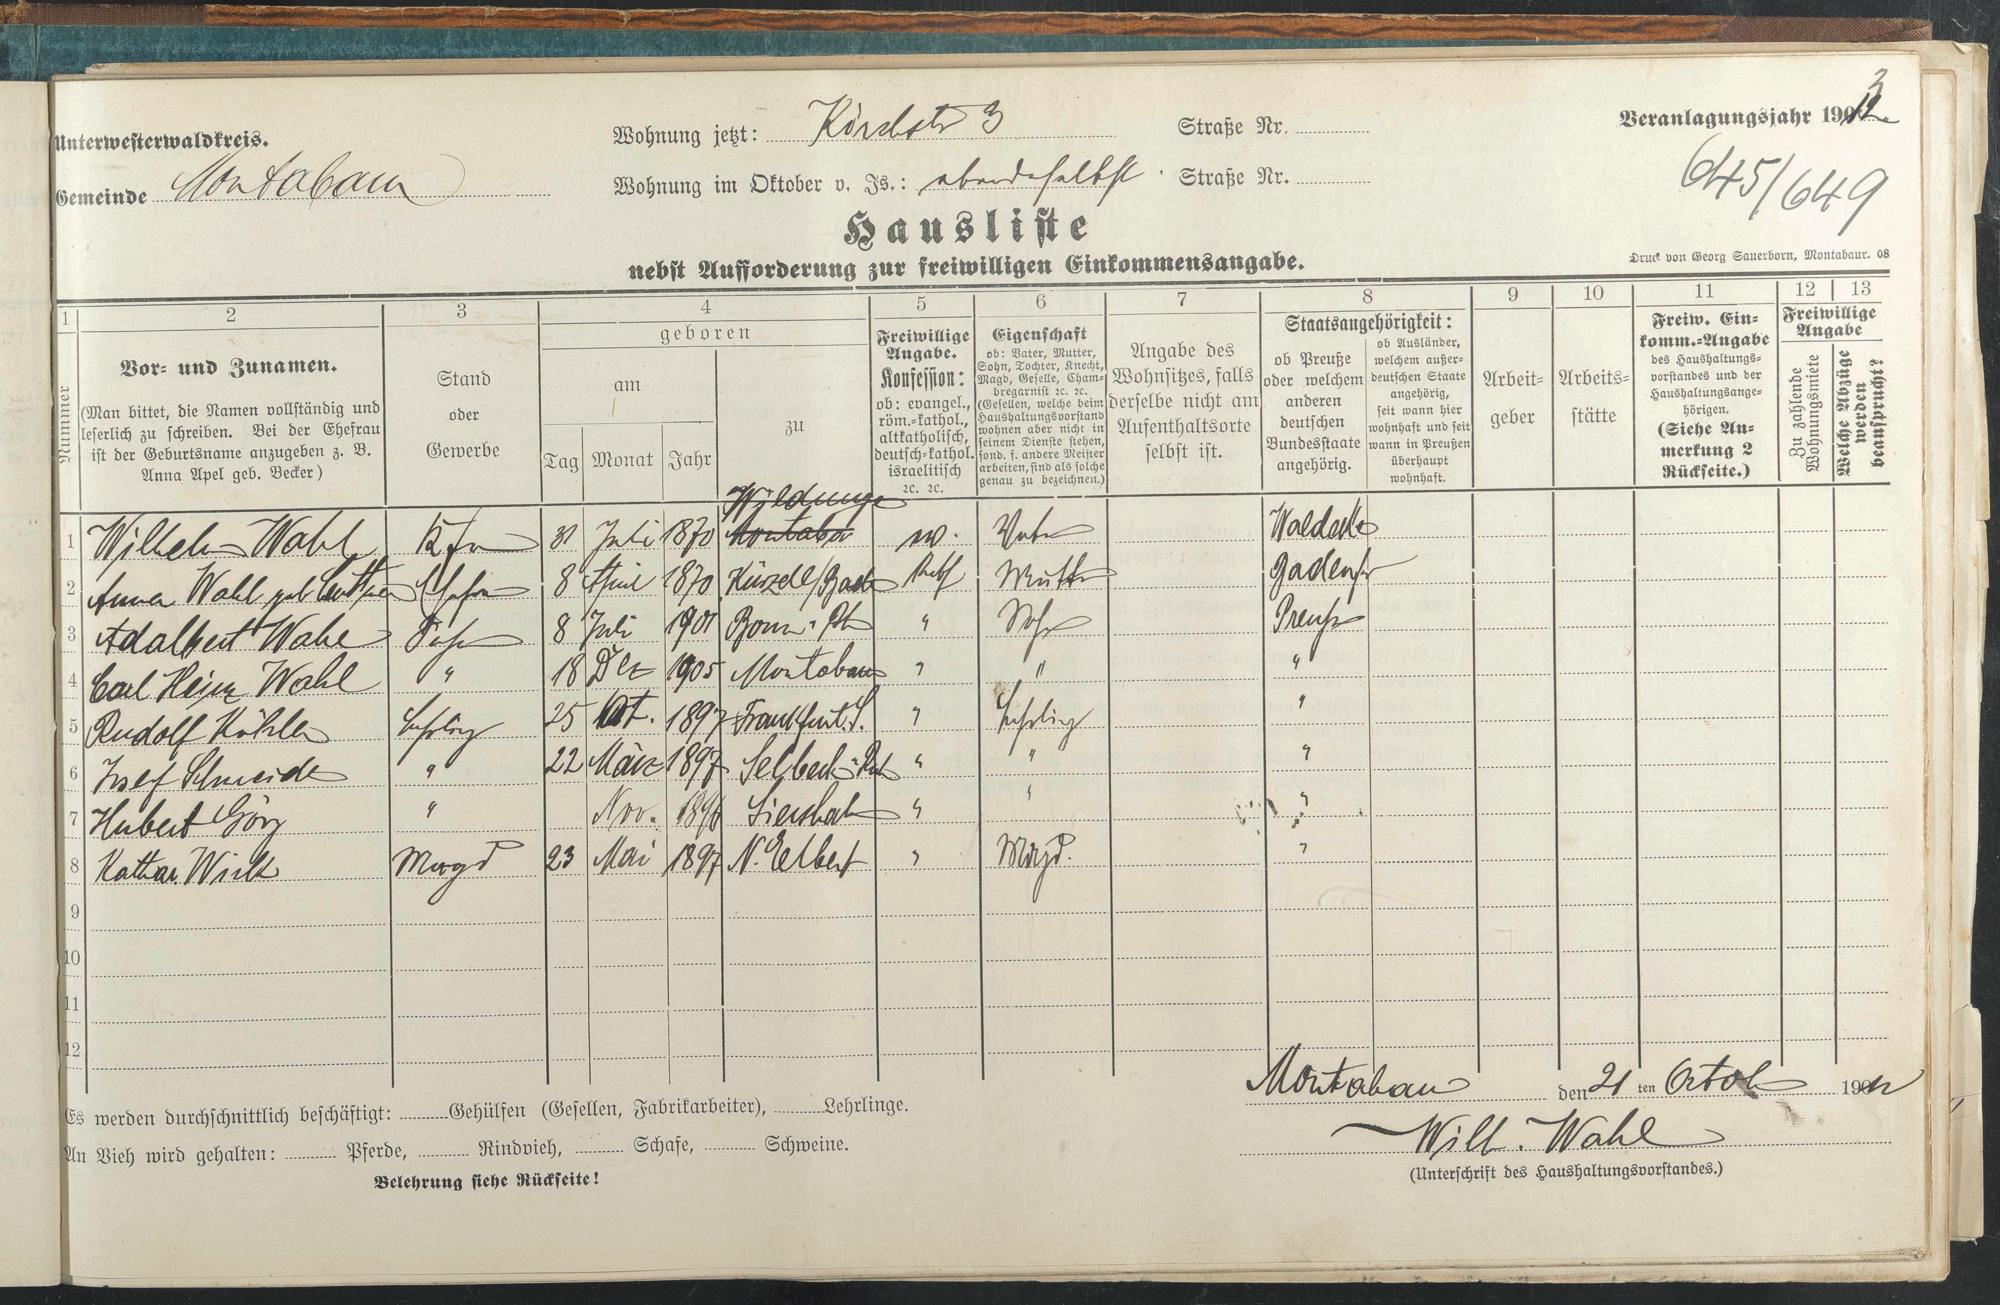 Unterwesterwaldkreis.
Gemeinde Montabaur
Wohnung jetzt: Kirchstr 3 Straße Nr.
Wohnung im Oktober v. Js.: ebendaselbst Straße Nr.
Veranlagungsjahr 1912
3
645/649
Hausliste
nebst Aufforderung zur freiwilligen Einkommensangabe.
Druck von Georg Sauerborn, Montabaur. 08
1 2 3 4 5 6 7 8 9 10 11 12 13
Nummer
Vor- und Zunamen.
(Man bittet, die Namen vollständig und
leserlich zu schreiben. Bei der Ehefrau
ist der Geburtsname anzugeben z. B.
Anna Apel geb. Becker)
Stand
oder
Gewerbe
geboren
am
Tag Monat Jahr
zu
Freiwillige
Angabe.
Konfession:
ob: evangel.,
röm.-kathol.,
altkatholisch,
deutsch-kathol.
israelitisch
ꝛc. ꝛc.
Eigenschaft
ob: Vater, Mutter,
Sohn, Tochter, Knecht,
Magd, Geselle, Cham-
bregarnist ꝛc. ꝛc.
(Gesellen, welche beim
Haushaltungsvorstand
wohnen aber nicht in
seinem Dienste stehen,
sond. f. andere Meister
arbeiten, sind als solche
genau zu bezeichnen.)
Angabe des
Wohnsitzes, falls
derselbe nicht am
Aufenthaltsorte
selbst ist.
Staatsangehörigkeit:
ob Preuße
oder welchem
anderen
deutschen
Bundesstaate
angehörig.
ob Ausländer,
welchem außer-
deutschen Staate
angehörig,
seit wann hier
wohnhaft und seit
wann in Preußen
überhaupt
wohnhaft.
Arbeit-
geber
Arbeits-
stätte
Freiw. Ein-
komm.-Angabe
des Haushaltungs-
vorstandes und der
Haushaltungsange-
hörigen.
(Siehe An-
merkung 2
Rückseite.)
Freiwillige
Angabe
Zu zahlende
Wohnungsmiete
Welche Abzüge
werden
beansprucht?
Wildunge
1 Wilhelm Wahl Kfm 31 Juli 1870 Montabar ev. Vater Waldeck
2 Anna Wahl geb Ehefrau 8 April 1870 Kürzell/Baden Kath Mutter Badenser
3 Adalbert Wahl Sohn 8 Juli 1901 Bonn a Rh " Sohn Preuße
4 Carl Heinz Wahl " 18 Dez 1905 Montabaur " " "
5 Rudolf Köhler Lehrling 25 Okt. 1897 Frankfurt. " Lehrling "
6 Josef Schneider " 22 März 1897 Selbach " " "
7 Hubert Görg " Nov. 1896 Siershahn " " "
8 Kathar. Magd 23 Mai 1897 N. Elbert " Magd. "
9
10
11
12
Montabaur den 21 ten Octob 1912
Es werden durchschnittlich beschäftigt: Gehülfen (Gesellen, Fabrikarbeiter), Lehrlinge.
Wilh. Wahl
An Vieh wird gehalten: Pferde, Rindvieh, Schafe, Schweine.
(Unterschrift des Haushaltungsvorstandes.)
Belehrung siehe Rückseite!